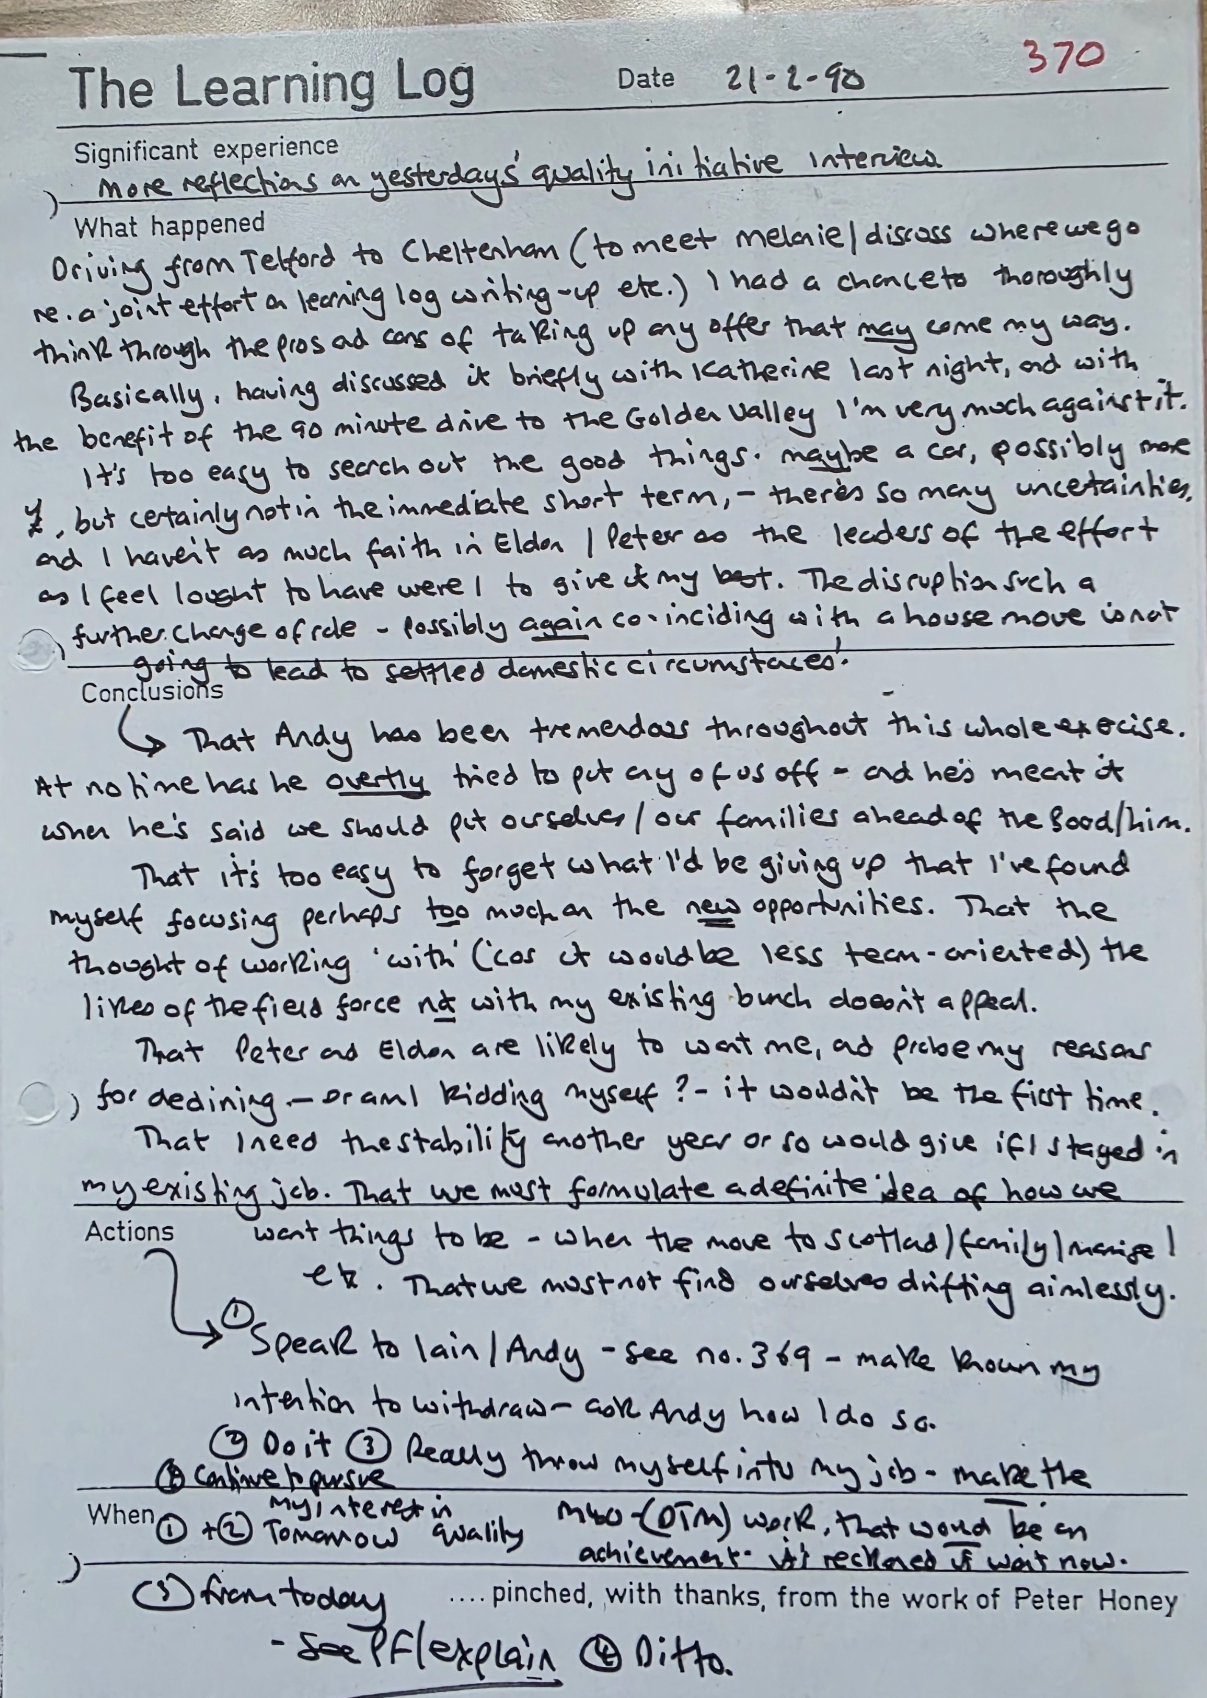 370
The Learning Log Date 21-2-90
Significant experience
more reflections on yesterday's quality initiative interview
What happened
Driving from Telford to Cheltenham (to meet Melanie/discuss where we go
re. a joint effort on learning log writing-up etc.) I had a chance to thoroughly
think through the pros and cons of taking up any offer that may come my way.
Basically, having discussed it briefly with Katherine last night, and with
the benefit of the 90 minute drive to the Golden Valley I'm very much against it.
It's too easy to search out the good things. maybe a car, possibly more
£, but certainly not in the immediate short term, - there's so many uncertainties,
and I haven't as much faith in Eldon / Peter as the leaders of the effort
as I feel I ought to have were I to give it my best. The disruption such a
further change of role - possibly again co-inciding with a house move is not
going to lead to settled domestic circumstances'.
Conclusions
That Andy has been tremendous throughout this whole exercise.
At no time has he overtly tried to put any of us off - and he's meant it
when he's said we should put ourselves/our families ahead of the Good/him.
That it's too easy to forget what I'd be giving up that I've found
myself focusing perhaps too much on the new opportunities. That the
thought of working 'with' ('cos it would be less team-oriented) the
likes of the field force not with my existing bunch doesn't appeal.
That Peter and Eldon are likely to want me, and probe my reasons
for declining - or am I kidding myself? - it wouldn't be the first time.
That I need the stability another year or so would give if I stayed in
my existing job. That we must formulate a definite idea of how we
Actions want things to be - when the move to Scotland/family/marriage/
etc. That we must not find ourselves drifting aimlessly.
① Speak to Iain/Andy - see no. 369 - make known my
intention to withdraw - ask Andy how I do so.
② Do it ③ Really throw myself into my job - make the
④ Continue to pursue
my interest in
quality
When ① + ② Tomorrow
(DTM) work, that would be an
achievement. It's reckoned it won't now.
③ from today .... pinched, with thanks, from the work of Peter Honey
- see explain ④ Ditto.